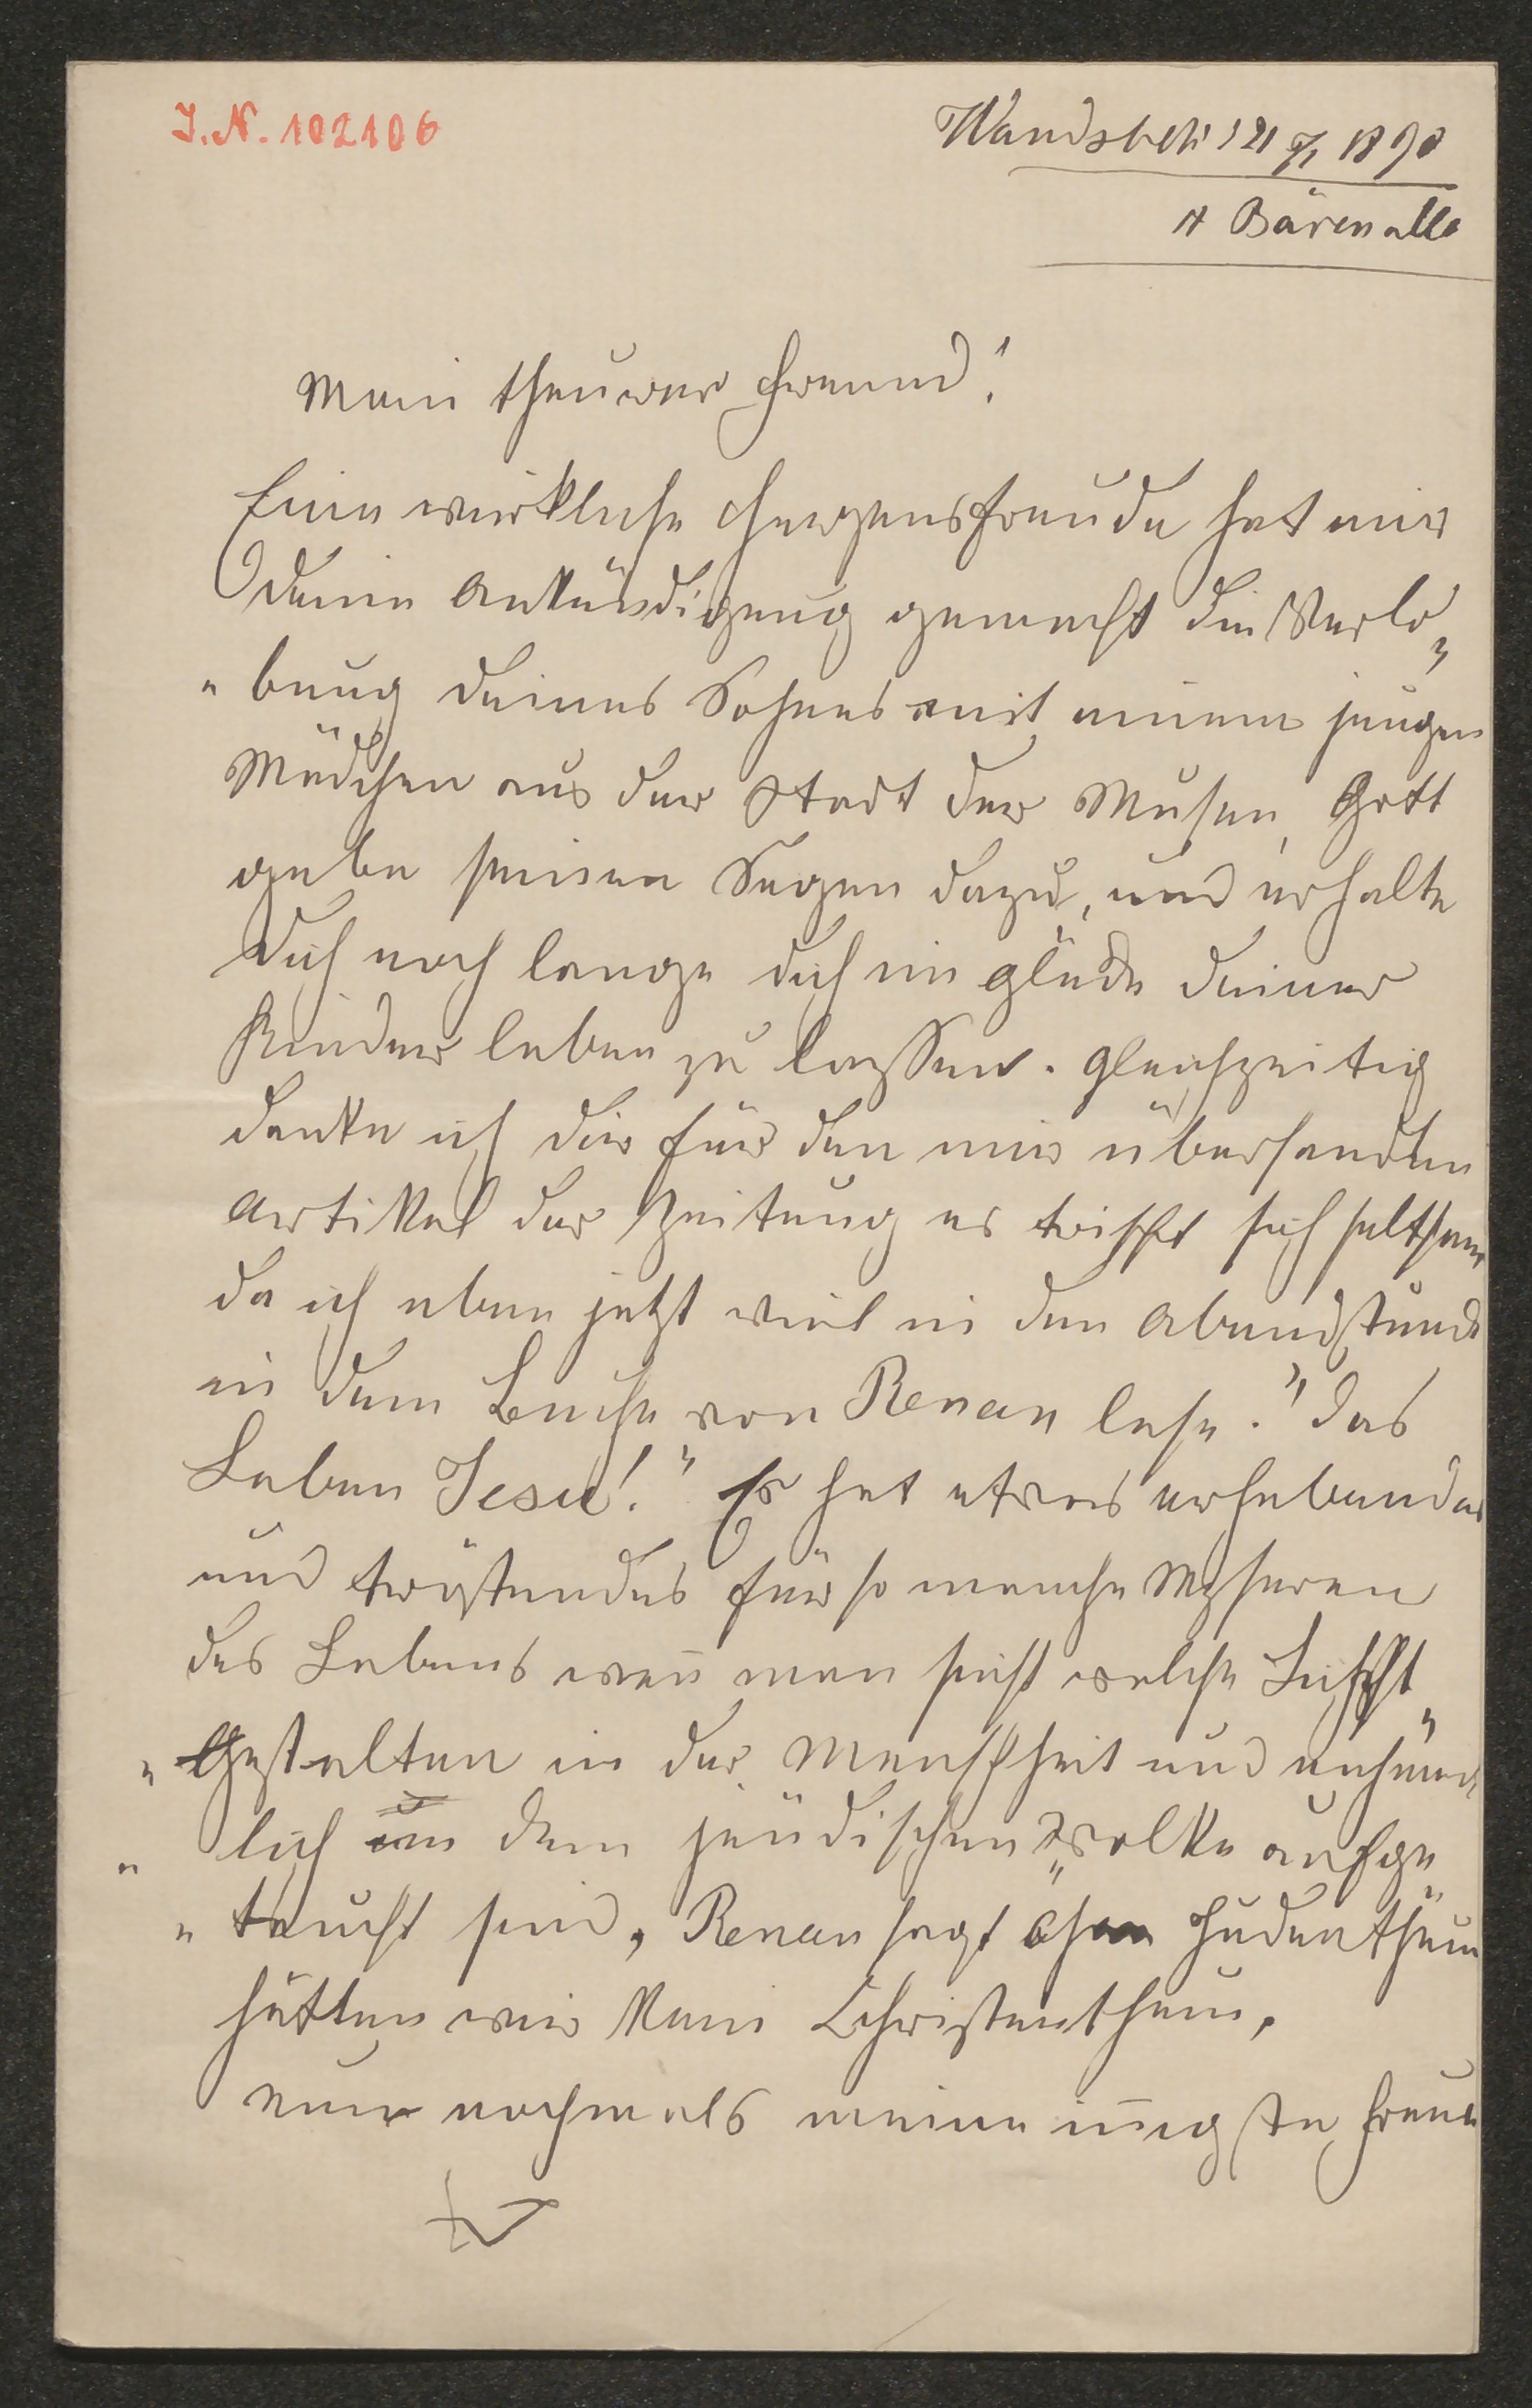 I.N. 102106
Wandsbek 21 9/1 1890
Bärenalle
Mein theurer Freund!
Eine wirkliche Herzensfreude hat mir
Deine Ankündigung gemacht die Verlo„
„bung deines Sohnes mit einem jungen
Mädchen aus der Stadt der Musen, Gott
gebe seinen Segen dazu, und erhalte
Dich noch lange dich im Glücke deiner
Kinder leben zu lassen. Gleichzeitig
danke ich dir für den mir übersandten
Artikel der Zeitung es trifft sich seltsam
da ich eben jetzt viel in den Abendstunde
in dem Buche von Renan lese. "das
Leben Jesu!" Es hat etwas erhebendes
und tröstendes für so manche Myseren
des Lebens wen̄ man sieht welche Licht„
„Gestalten in der Menschheit und
„lich dem jüdischen Volke aufge„
„taucht sind, Renan sagt Ohne Judenthum
hätten wir kein Christenthum,
nun nochmals meine in̄igste Freude